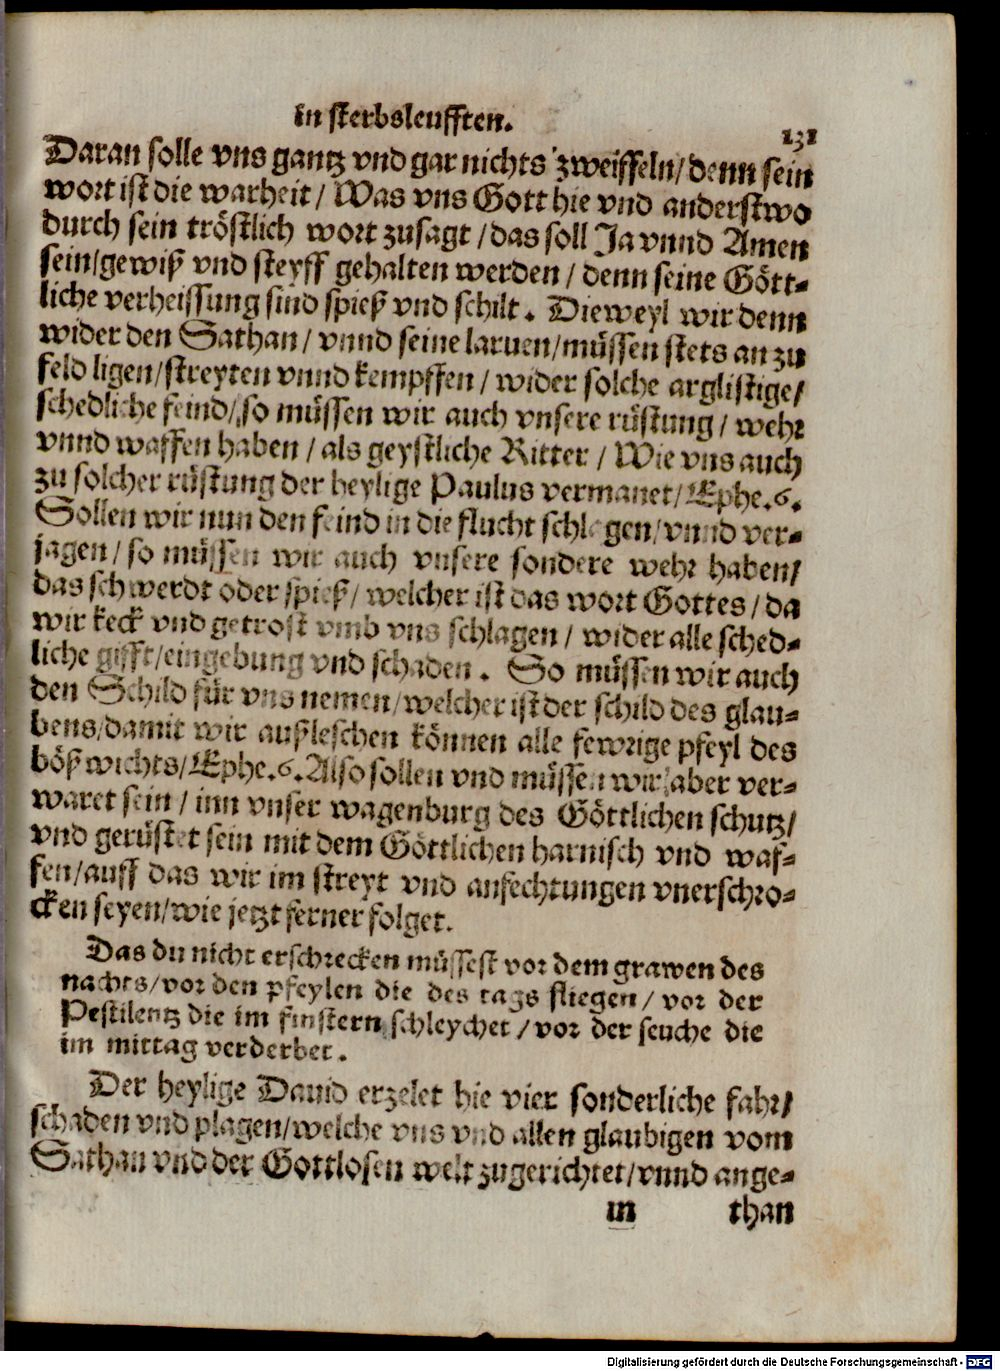 in sterbsleufften.
131
Daran solle vns gantz vnd gar nichts zweiffeln/ denn sein
wort ist die warheit / Was vns Gott hie vnd anderstwo
durch sein tröstlich wort zusagt / das soll Ja vnnd Amen
sein/gewiß vnd steyff gehalten werden / denn seine Gött-
liche verheissung sind spieß vnd schilt. Dieweyl wir denn
wider den Sathan / vnnd seine laruen/müssen stets an zu
feld ligen/streyten vnnd kempffen / wider solche arglistige/
schedliche feind/ so müssen wir auch vnsere rüstung / wehr
vnnd waffen haben / als geystliche Ritter / Wie vns auch
zu solcher rüstung der heylige Paulus vermanet/ Ephe.6.
Sollen wir nun den feind in die flucht schlagen/vnnd ver-
jagen / so müssen wir auch vnsere sondere wehr haben/
das schwerdt oder spieß / welcher ist das wort Gottes / da
wir keck vnd getrost vmb vns schlagen / wider alle sched-
liche gifft/eingebung vnd schaden. So müssen wir auch
den Schild für vns nemen/welcher ist der schild des glau-
bens/damit wir außleschen können alle fewrige pfeyl des
bößwichts/Ephe.6. Also sollen vnd müssen wir aber ver-
waret sein / inn vnser wagenburg des Göttlichen schutz/
vnd gerüstet sein mit dem Göttlichen harnisch vnd waf-
fen/auff das wir im streyt vnd anfechtungen vnerschro-
cken seyen/wie jetzt ferner folget.
Das du nicht erschrecken müssest vor dem grawen des
nachts/vor den pfeylen die des tags fliegen / vor der
Pestilentz die im finstern schleychet / vor der seuche die
im mittag verderbet.
Der heylige Dauid erzelet hie vier sonderliche fahr/
schaden vnd plagen/welche vns vnd allen glaubigen vom
Sathan vnd der Gottlosen welt zugerichtet/vnnd ange-
in than
Digitalisierung gefördert durch die Deutsche Forschungsgemeinschaft - DFG